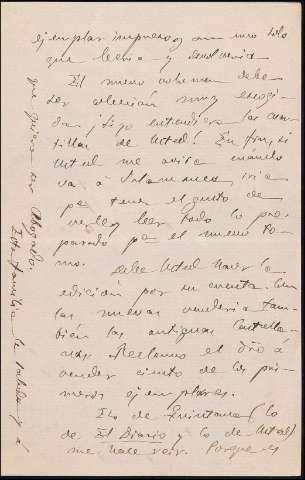 ejemplar impreso y aun uno solo
que leería y devolvería
El nuevo volumen debe
ser colección muy escogi-
da ¡Siga entendiéra las
tillas de Usted! En fin, si
Usted me avisa cuando
va á Salamanca iría
pª tener el gusto de
verle y leer todo lo pre-
parado pª el nuevo to-
mo.
Debe Usted hacer la
edición por su cuenta. Con
las nuevas vendería tam-
bién las antiguas Castella-
nas. Reclamo el dro á
vender ciento de los pri-
meros ejemplares.
Lo de Quintana (lo
de El Diario y lo de Usted)
me hace reir. Porque es
que quiera ser Abogado.
Esta familia le saluda y á